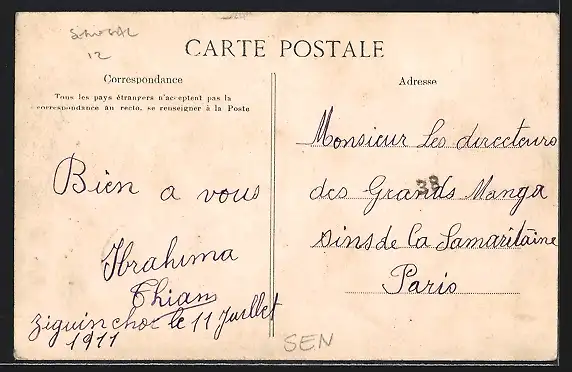 SENEGAL
12
CARTE POSTALE
Correspondance
Tous les pays étrangers n'acceptent pas la
correspondance au recto, se renseigner à la Poste
Bien a vous
Ibrahima
Thiam
Ziguinchor le 11 Juillet
1911
Adresse
Monsieur Les directeurs
des Grands Manga
38
sins de la Samaritaine
Paris
SEN